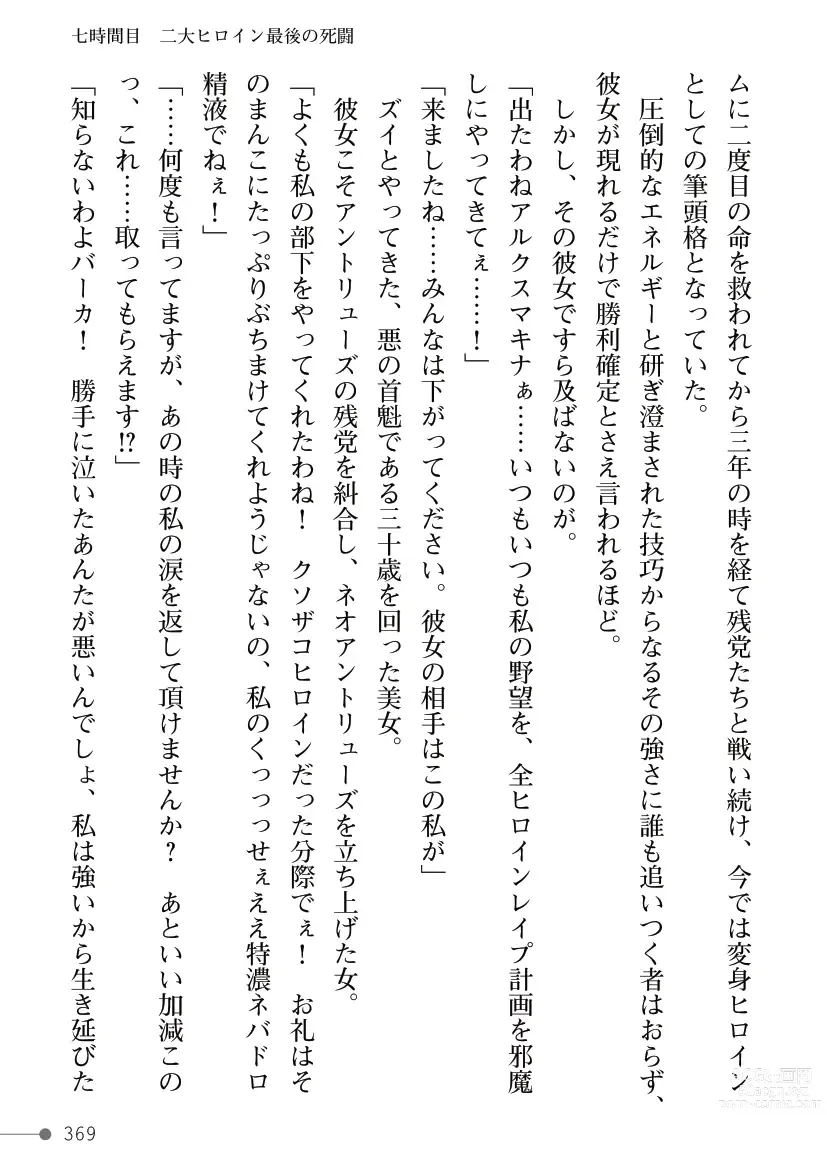 七時間目　二大ヒロイン最後の死闘
ムに二度目の命を救われてから三年の時を経て残党たちと戦い続け、今では変身ヒロイン
としての筆頭格となっていた。
　圧倒的なエネルギーと研ぎ澄まされた技巧からなるその強さに誰も追いつく者はおらず、
彼女が現れるだけで勝利確定とさえ言われるほど。
　しかし、その彼女ですら及ばないのが。
「出たわねアルクスマキナぁ……いつもいつも私の野望を、全ヒロインレイプ計画を邪魔
しにやってきてぇ……！」
「来ましたね……みんなは下がってください。彼女の相手はこの私が」
　ズイとやってきた、悪の首魁である三十歳を回った美女。
　彼女こそアントリューズの残党を糾合し、ネオアントリューズを立ち上げた女。
「よくも私の部下をやってくれたわね！　クソザコヒロインだった分際でぇ！　お礼はそ
のまんこにたっぷりぶちまけてくれようじゃないの、私のくっっっせぇええ特濃ネバドロ
精液でねぇ！」
「……何度も言ってますが、あの時の私の涙を返して頂けませんか？　あといい加減この
っ、これ……取ってもらえます!?」
「知らないわよバーカ！　勝手に泣いたあんたが悪いんでしょ、私は強いから生き延びた
369